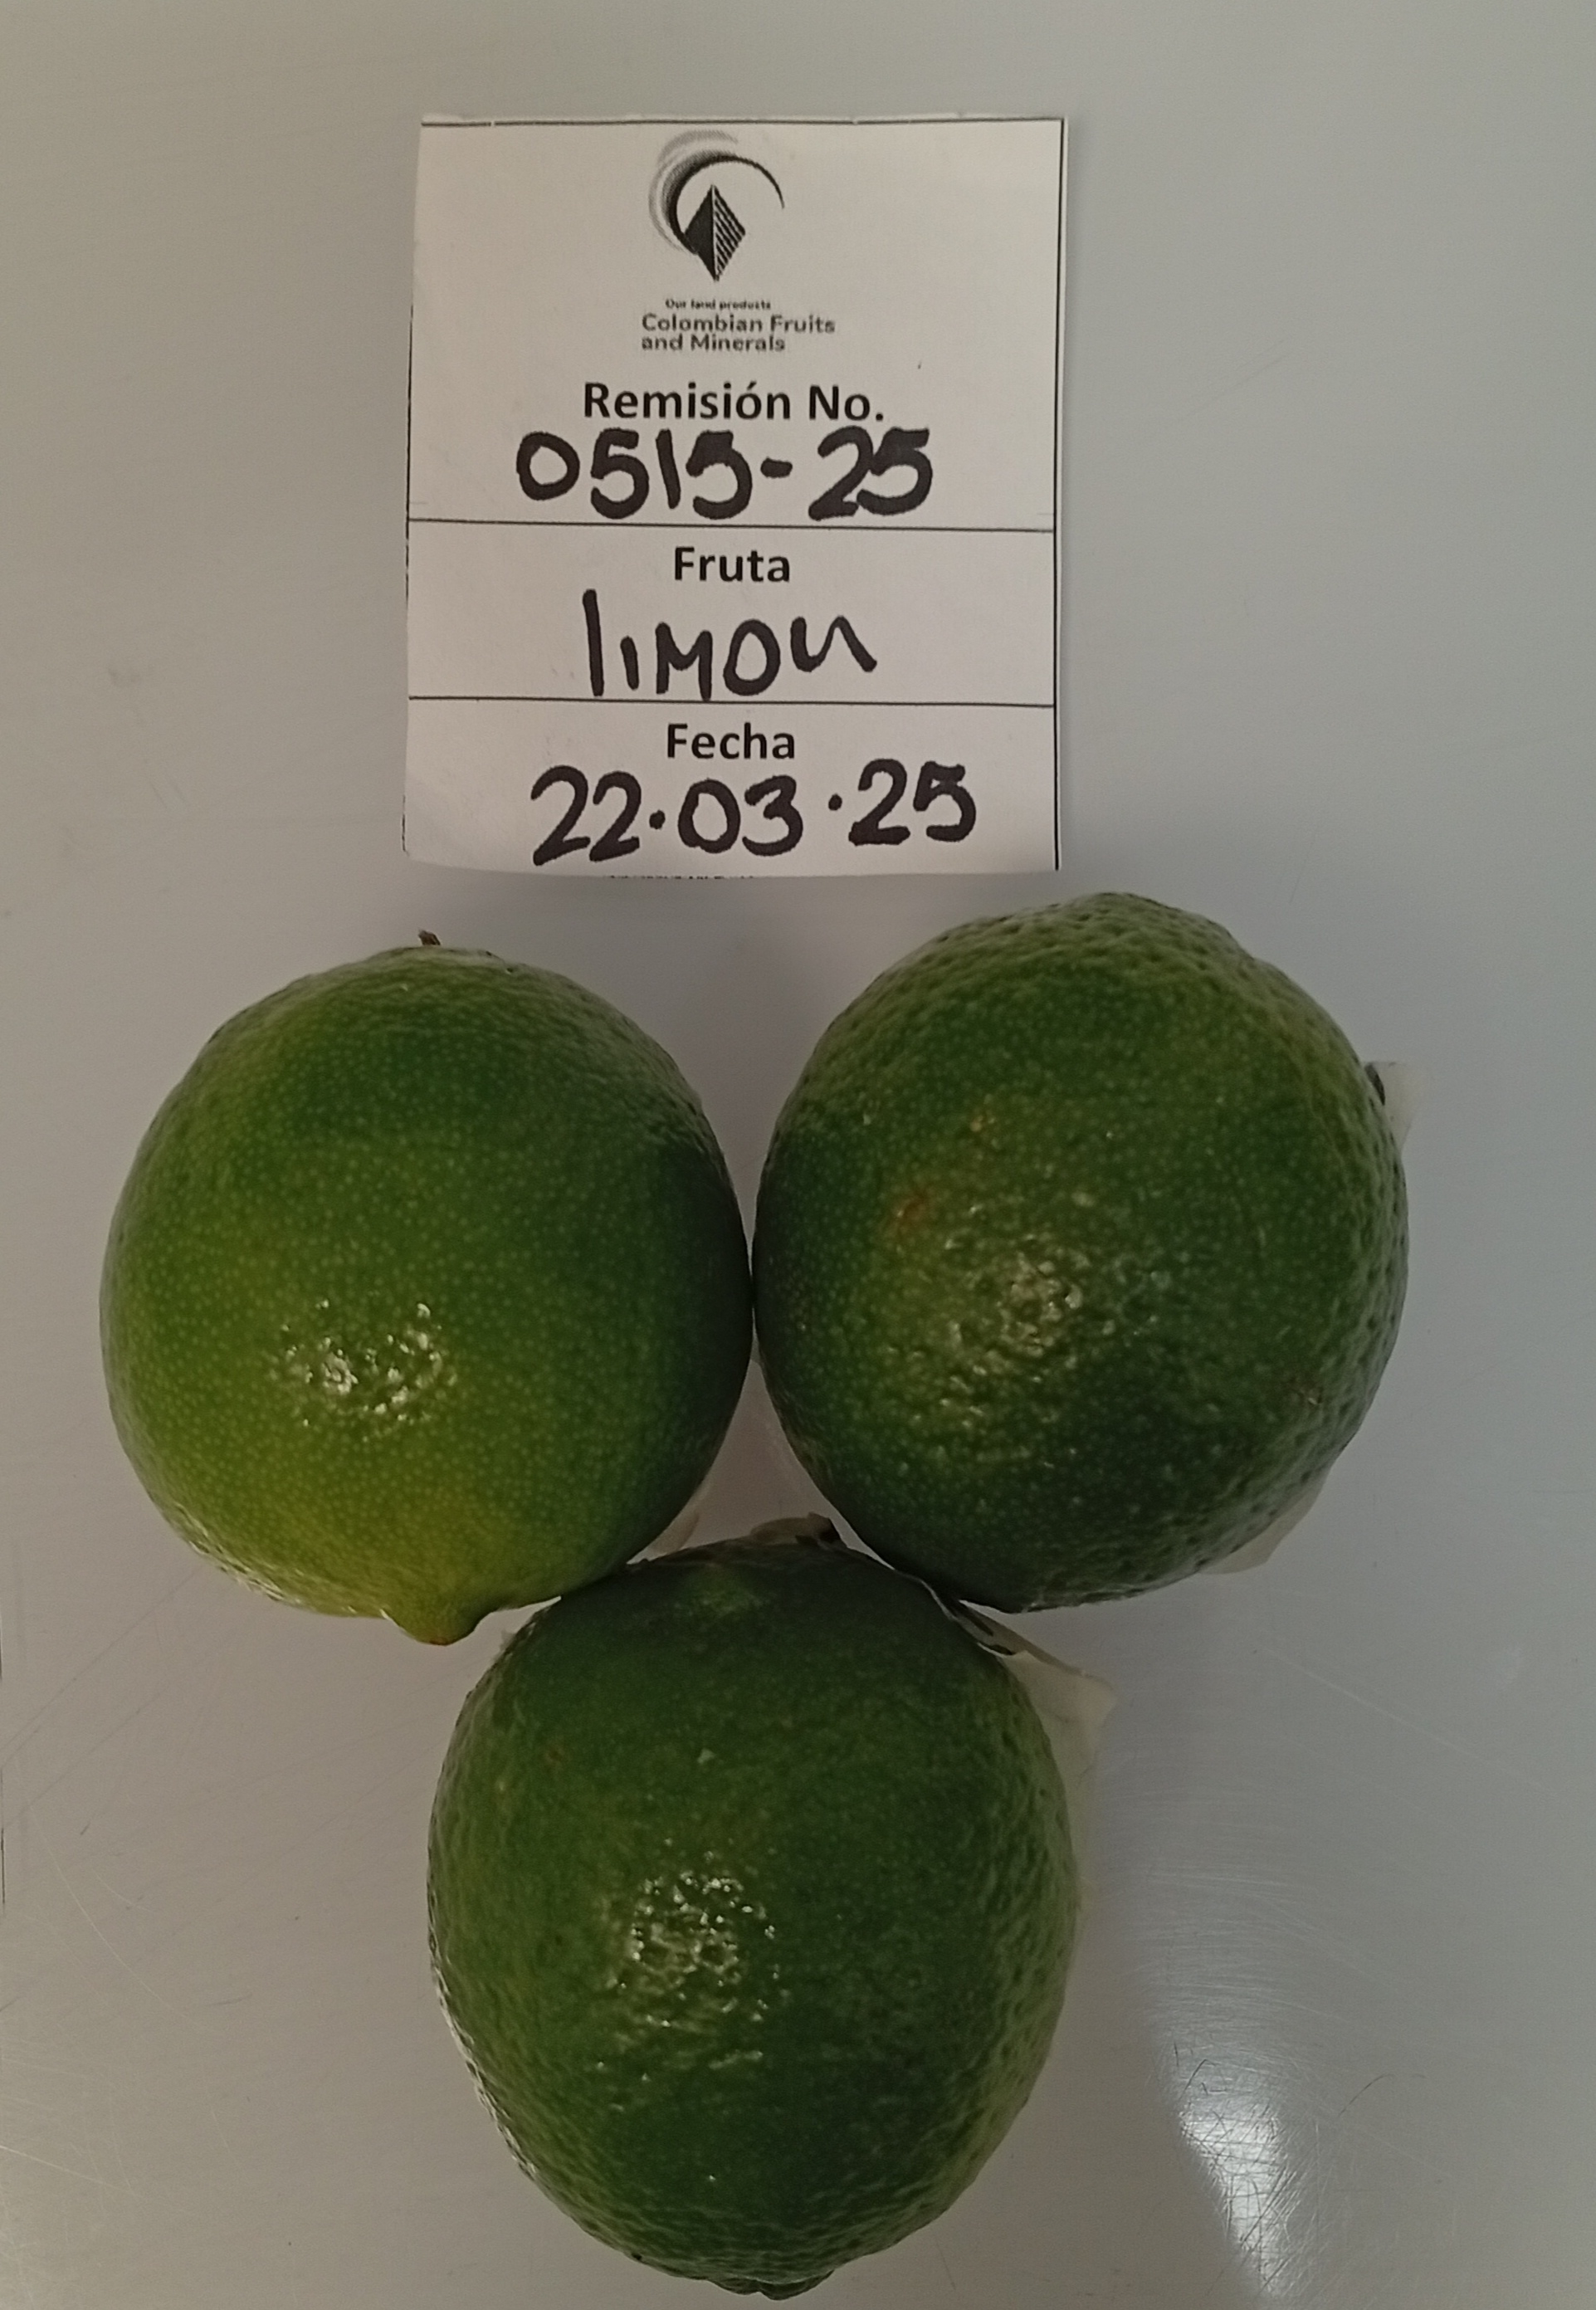 Our land products
Colombian Fruits
and Minerals
Remisión No.
0515-25
Fruta
limon
Fecha
22.03.25